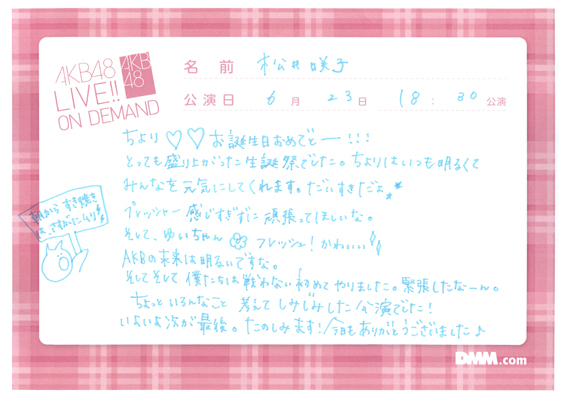 AKB48
LIVE!!
ON DEMAND
AKB
48
名前 松井咲子
公演日 6月 23日 18:30 公演
ちより♡♡お誕生日おめでとー!!!
とっても盛り上がった生誕祭でした。ちよりはいつも明るくて
みんなを元気にしてくれます。だいすきだよ
プレッシャー感じすぎずに頑張ってほしいな。
そして、ゆいちゃん フレッシュ!かわいい
AKBの未来は明るいですな。
そしてそして僕たちは戦わない初めてやりました。緊張したなーん。
ちょっといろんなこと考えてしみじみした公演でした!
いよいよ次が最後。たのしみます!今日もありがとうございました♪
朝からすき焼き
は、さすがにムリ!
DMM.com